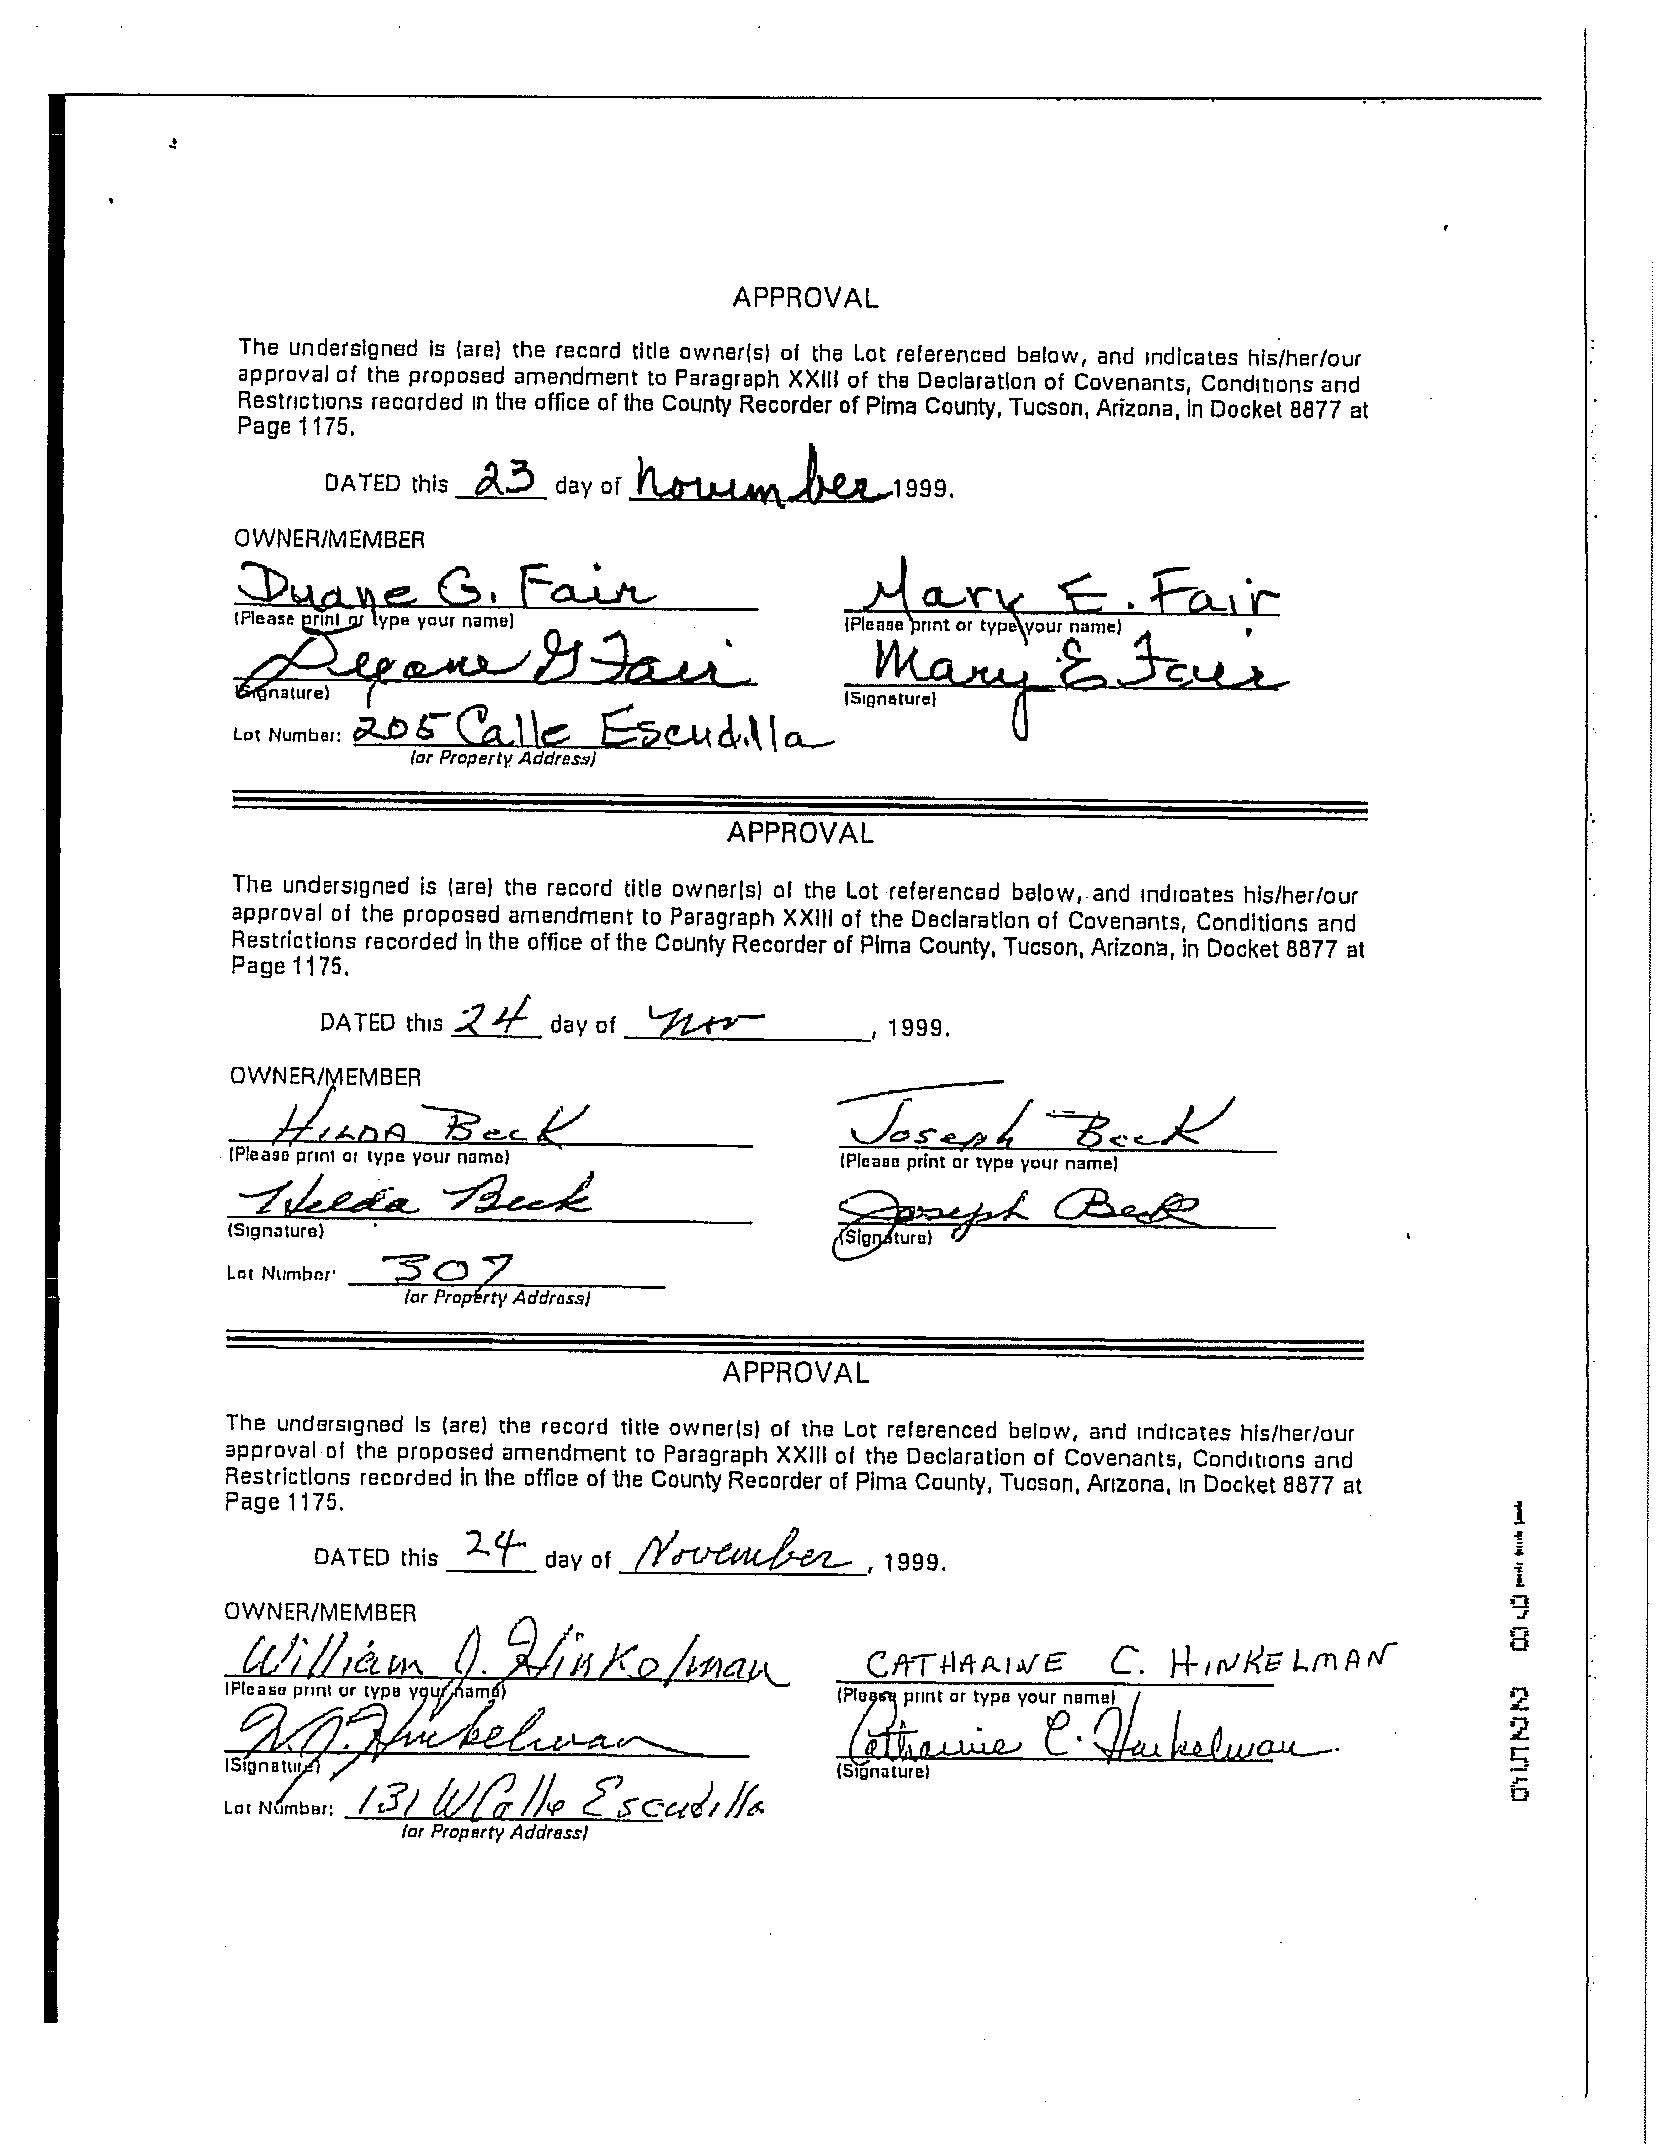 APPROVAL
The undersigned is (are) the record title owner(s) of the Lot referenced below, and indicates his/her/our
approval of the proposed amendment to Paragraph XXIII of the Declaration of Covenants, Conditions and
Restrictions recorded in the office of the County Recorder of Pima County, Tucson, Arizona, in Docket 8877 at
Page 1175.
DATED this 23 day of November 1999.
OWNER/MEMBER
Duane G. Fair Mary E. Fair
(Please print or type your name) (Please print or type your name)
Duane G Fair Mary E Fair
(Signature) (Signature)
Lot Number: 205 Calle Escudilla
(or Property Address)
APPROVAL
The undersigned is (are) the record title owner(s) of the Lot referenced below, and indicates his/her/our
approval of the proposed amendment to Paragraph XXIII of the Declaration of Covenants, Conditions and
Restrictions recorded in the office of the County Recorder of Pima County, Tucson, Arizona, in Docket 8877 at
Page 1175.
DATED this 24 day of Nov, 1999.
OWNER/MEMBER
HILDA BecK Joseph BecK
(Please print or type your name) (Please print or type your name)
Hilda Beck Joseph Beck
(Signature) (Signature)
Lot Number: 307
(or Property Address)
APPROVAL
The undersigned is (are) the record title owner(s) of the Lot referenced below, and indicates his/her/our
approval of the proposed amendment to Paragraph XXIII of the Declaration of Covenants, Conditions and
Restrictions recorded in the office of the County Recorder of Pima County, Tucson, Arizona, in Docket 8877 at
Page 1175.
DATED this 24 day of November, 1999.
OWNER/MEMBER
William J. Hinkelman CATHARINE C. HINKELMAN
(Please print or type your name) (Please print or type your name)
W. J. Hinkelman Catharine C. Hinkelman
(Signature) (Signature)
Lot Number: 131 W Calle Escudilla
(or Property Address)